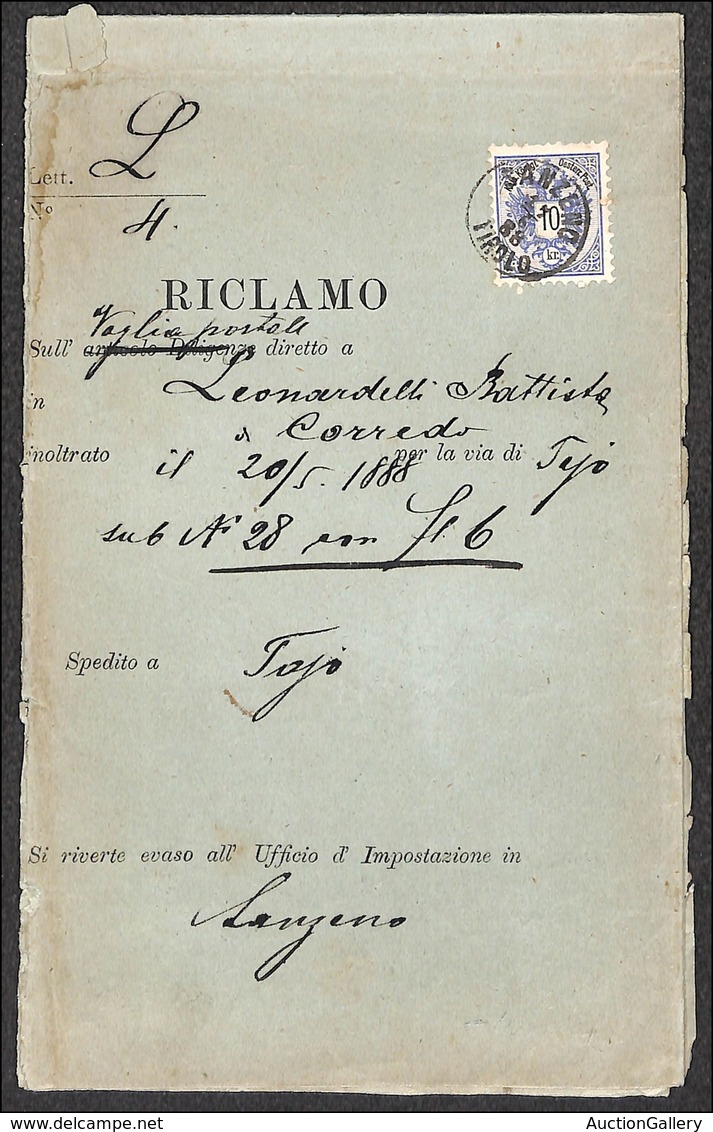 L
Lett.
No
4.
SANZENO
88
TIROLO
Oesterr. Post.
10
kr.
RICLAMO
Vaglia postale
Sull' articolo Diligenze diretto a
Leonardelli Battista
in
a Corredo
inoltrato il 20/5. 1888 per la via di Tajo
sub No 28 con Fl. 6
Spedito a Tajo
Si riverte evaso all' Ufficio d' Impostazione in
Sanzeno
AuctionGallery